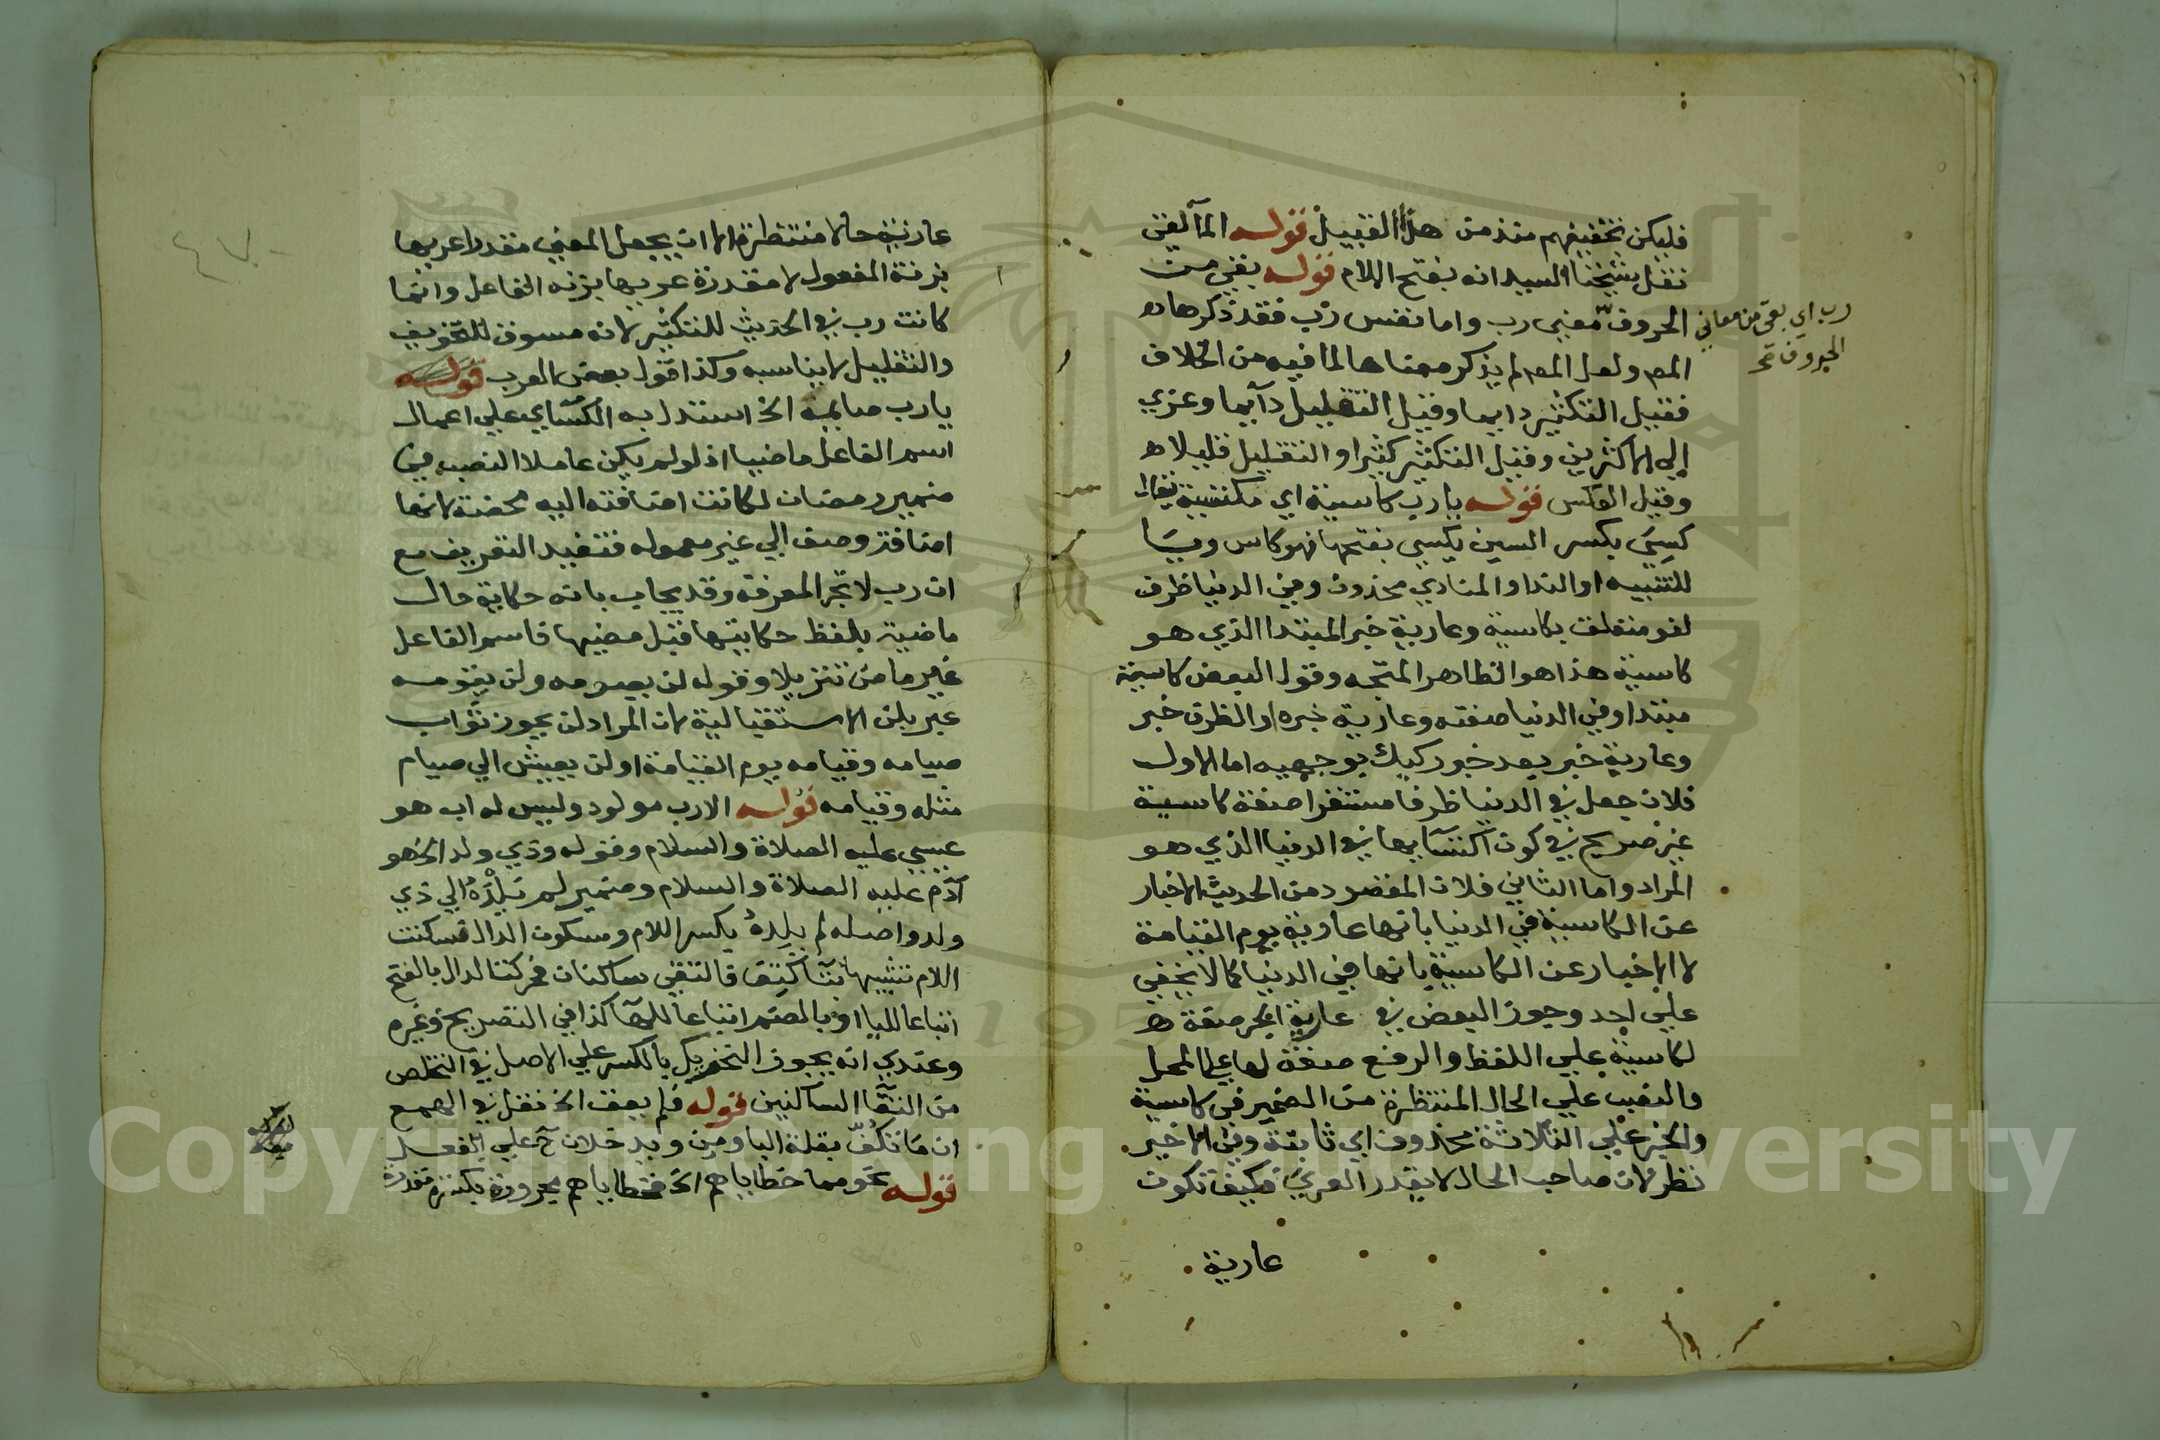 فليكن تخفيفهم منذ من هذا القبيل قوله المالقي
نقل شيخنا السيد انه بفتح اللام قوله بقي من
الحروف معني رب واما نفس رب فقد ذكرها ه
رب اي بقي من معاني
الحروف تمر
المص ولعل المص لم يذكر معناها لما فيه من الخلاف
فقيل التكثير دايما وقيل التقليل دآيما وعزي
إلى الاكثرين وقيل التكثير كثيرا والتقليل قليلا ه
وقيل العكس قوله يا رب كاسية اي مكتسية يقال
كسِيَ بكسر السين يكسي بفتحها فهو كاس ويا
للتنبيه او الندا والمنادي محذوف وفي الدنيا ظرف
لغو متعلق بكاسية وعارية خبر المبتدا الذي هو
كاسية هذا هو الظاهر المتجه وقول البعض كاسية
مبتدا وفي الدنيا صفته وعارية خبره او الظرف خبر
وعارية خبر بعد خبر ركيك بوجهيه اما الاول
فلان جعل في الدنيا ظرفا مستقرا صفة كاسية
غير صريح في كون اكتسآيها في الدنيا الذي هو
المراد واما الثاني فلان المقصود من الحديث الاخبار
عن الكاسية في الدنيا بانها عارية يوم القيامة
لا الاخبار عن الكاسية بانها في الدنيا كما لا يخفي
علي احد وجوز البعض في عارية الجر صفة ه
لكاسية علي اللفظ والرفع صفة لها علي المحل
والنصب علي الحال المنتظرة من الضمير في كاسية
والخبر علي الثلاثة محذوف اي ثابتة وفي الاخير
نظر لان صاحب الحال لا يقدر العري فكيف تكون
عارية
عارية حالا منتظرة الا ان يجعل المعني مقدرا عريها
بزنة المفعول لا مقدرة عريها بزنه الفاعل وانما
كانت رب في الحديث للتكثير لانه مسوق للتخويف
والتقليل لا يناسبه وكذا قول بعض العرب قوله
يا رب صايمه الخ استدل به الكسآي علي اعمال
اسم الفاعل ماضيا اذ لو لم يكن عاملا النصب في
ضمير رمضان لكانت اضافته اليه محضة لانها
اضافة وصف إلي غير معموله فتفيد التعريف مع
ان رب لا تجر المعرفة وقد يجاب بانه حكاية حال
ماضية بلفظ حكايتها قبل مضيها فاسم الفاعل
غير ماض تنزيلا وقوله لن يصومه ولن يقومه
عبر بلن الاستقبالية لان المراد لن يجوز ثواب
صيامه وقيامه يوم القيامة او لن يعيش الي صيام
مثله وقيامه قوله الا رب مولود وليس له اب هو
عيسي عليه الصلاة والسلام وقوله وذي ولد الخ هو
آدم عليه الصلاة والسلام وضمير لم يَلْدَهُ الي ذي
ولد واصله لم يلِدهُ بكسر اللام وسكون الدال فسكنت
اللام تشبيها بتآ كتف فالتقي ساكنان فحركت الدال بالفتح
اتباعا لليا او بالضم اتباعا للهآ كذا في التصريح وغيره
وعندي انه يجوز التحريك بالكسر علي الاصل في التخلص
من التقآ الساكنين قوله فلم يعق الخ نقل في الهمع
ان ما تكفّ بقلة البا ومن ويدخلان ح علي الفعل
قوله نحو مما خطاياهم الخ فخطاياهم مجرورة بكسرة مقدرة